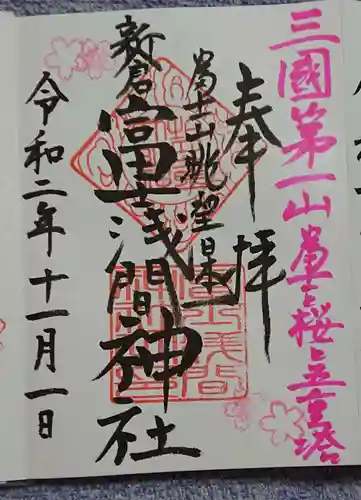 三國第一山 冨士と桜と五重塔
奉拝
冨士山眺望日本一
新倉
富士浅間神社
令和二年十一月一日